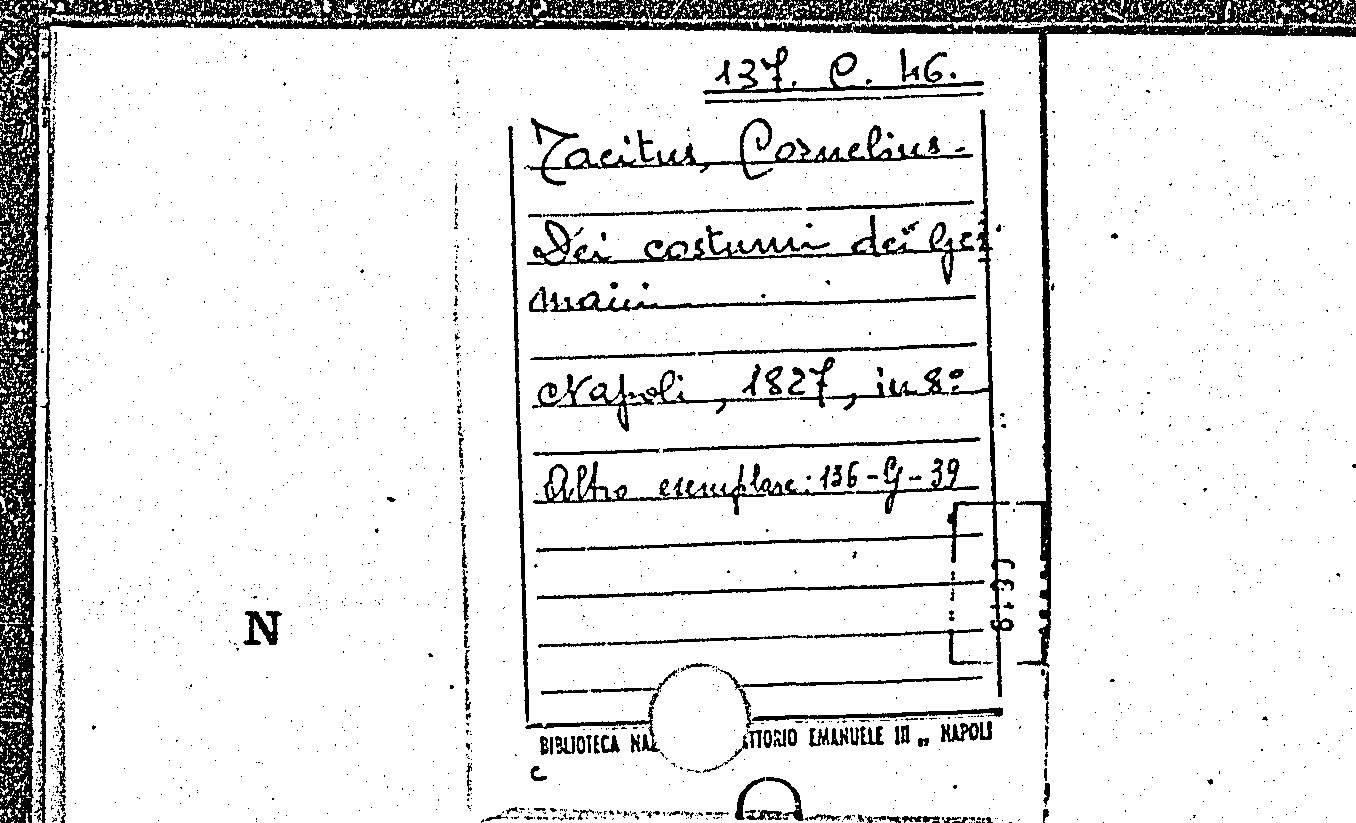 137. C. 46.
Tacitus, Cornelius.
Dei costumi dei Ger
mani
Napoli, 1827, in 8°
Altro esemplare: 136-G-39
N
BIBLIOTECA NAZ TTORIO EMANUELE III „ NAPOLI
C